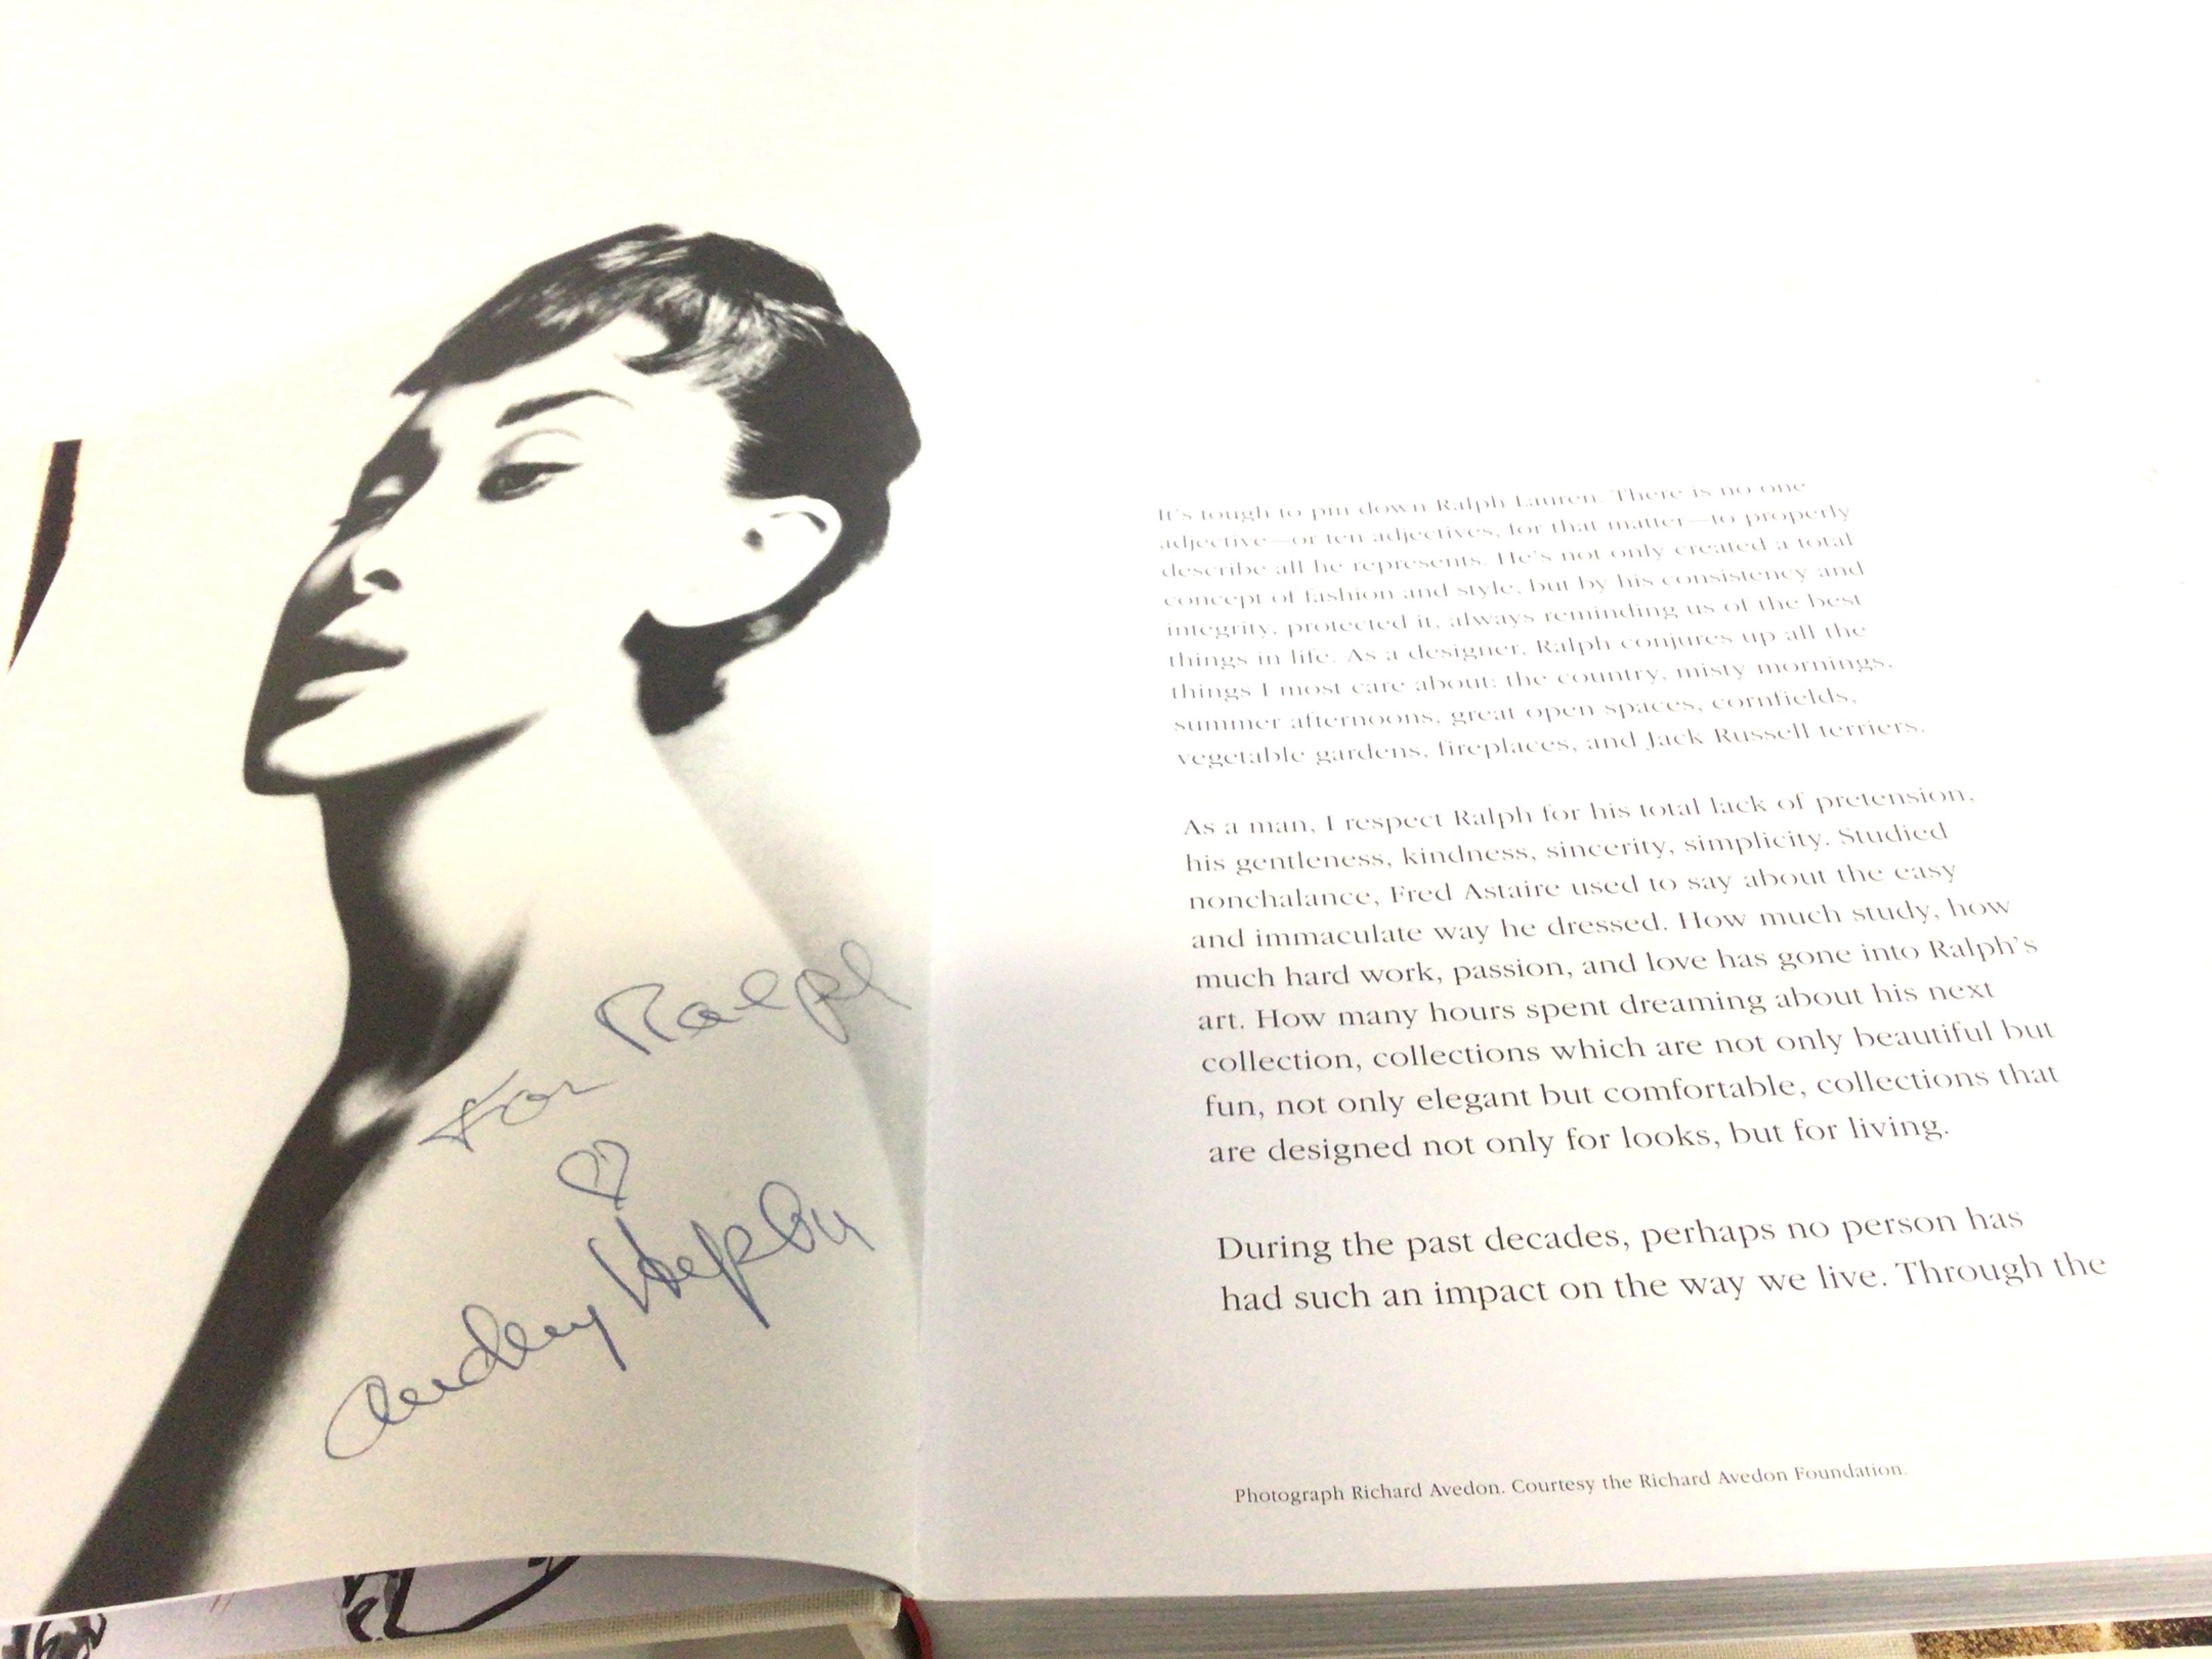 For Ralph
♡
Audrey Hepburn
It's tough to pin down Ralph Lauren. There is no one
adjective—or ten adjectives, for that matter—to properly
describe all he represents. He's not only created a total
concept of fashion and style, but by his consistency and
integrity, protected it, always reminding us of the best
things in life. As a designer, Ralph conjures up all the
things I most care about: the country, misty mornings,
summer afternoons, great open spaces, cornfields,
vegetable gardens, fireplaces, and Jack Russell terriers.
As a man, I respect Ralph for his total lack of pretension,
his gentleness, kindness, sincerity, simplicity. Studied
nonchalance, Fred Astaire used to say about the easy
and immaculate way he dressed. How much study, how
much hard work, passion, and love has gone into Ralph's
art. How many hours spent dreaming about his next
collection, collections which are not only beautiful but
fun, not only elegant but comfortable, collections that
are designed not only for looks, but for living.
During the past decades, perhaps no person has
had such an impact on the way we live. Through the
Photograph Richard Avedon. Courtesy the Richard Avedon Foundation.